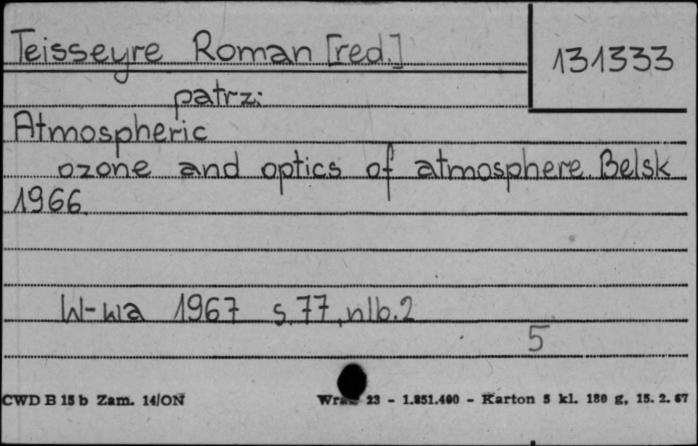 Teisseyre Roman [red.]
131333
patrz:
Atmospheric
ozone and optics of atmosphere. Belsk
1966.
W-wa 1967 s.77, nlb.2
5
CWD B 15 b Zam. 14/ON
23 - 1.851.400 - Karton 5 kl. 180 g, 15. 2. 67